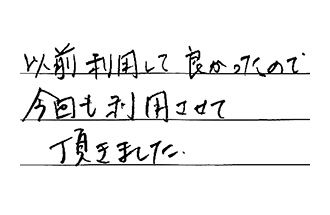 以前利用して良かったので
今回も利用させて
頂きました.